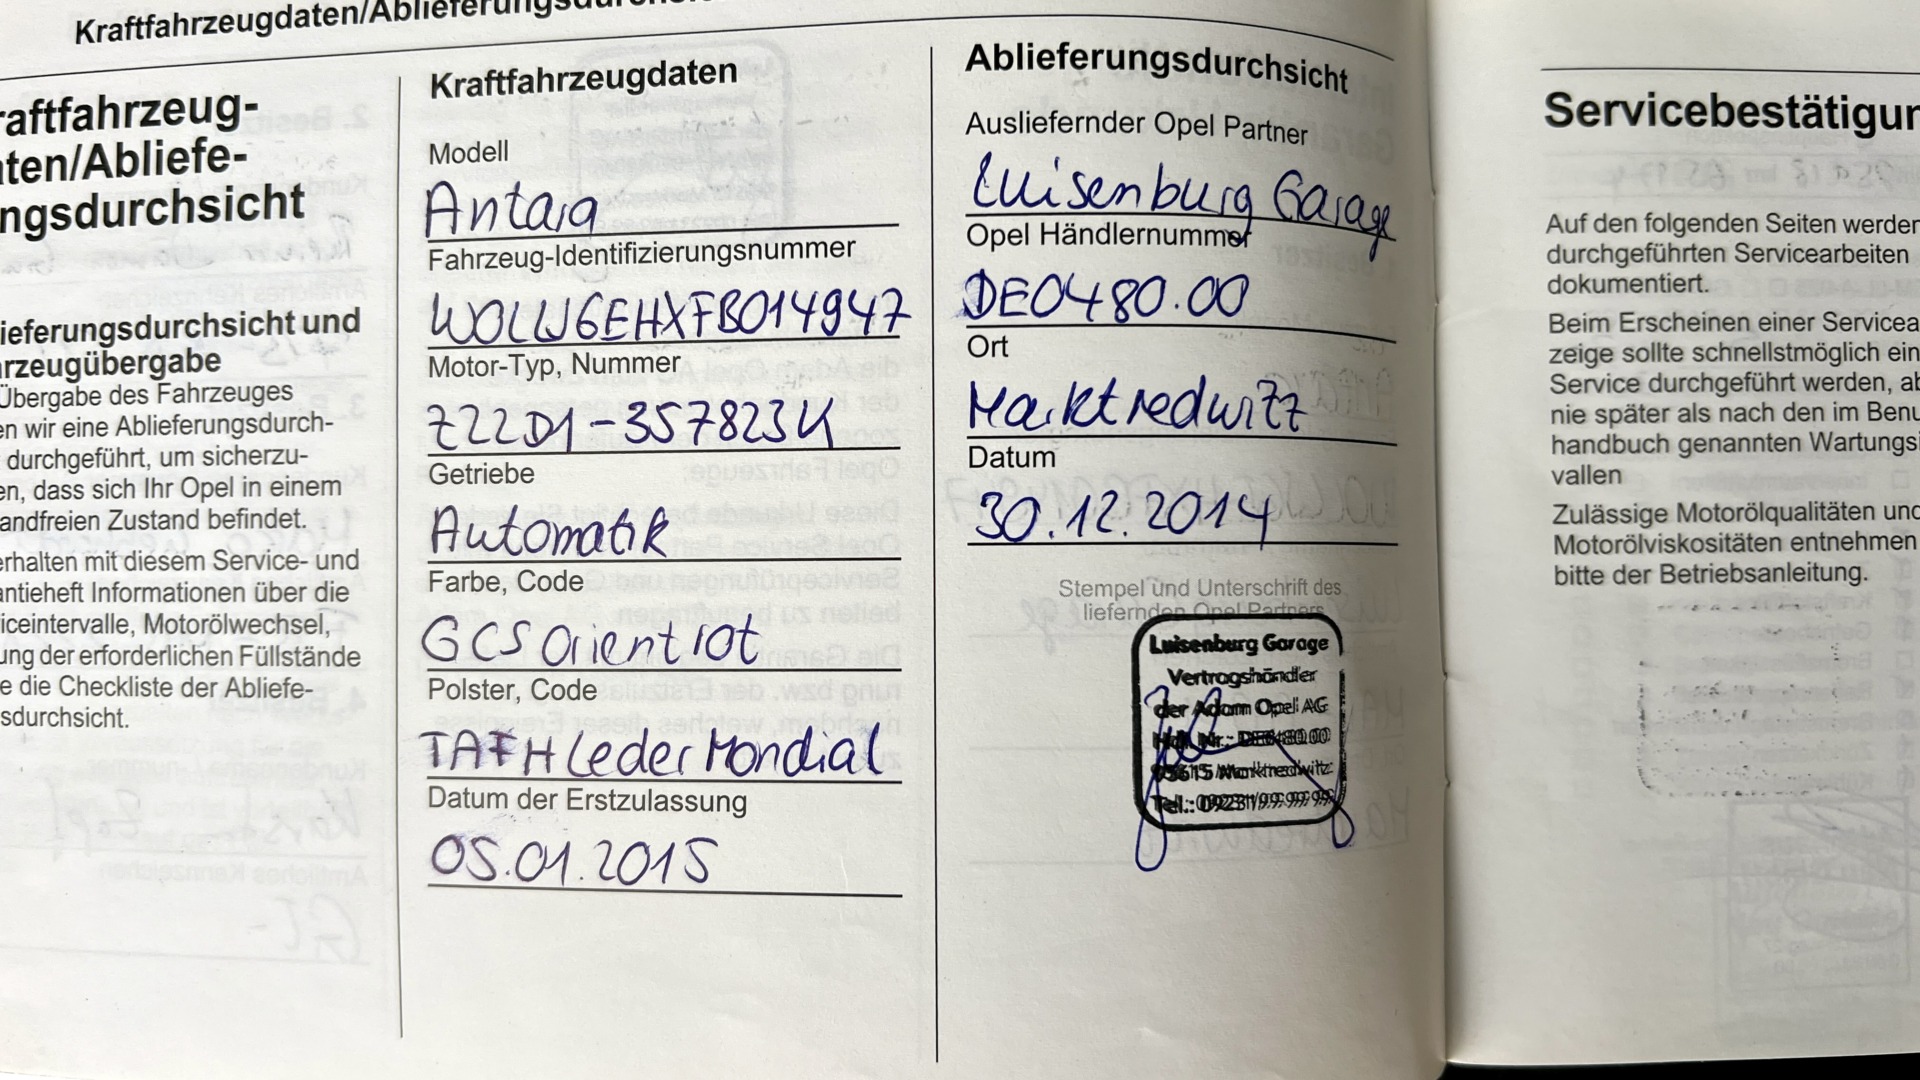 Kraftfahrzeugdaten/Ablieferungsdurchsi
raftfahrzeug-
aten/Abliefe-
ngsdurchsicht
lieferungsdurchsicht und
hrzeugübergabe
Übergabe des Fahrzeuges
en wir eine Ablieferungsdurch-
durchgeführt, um sicherzu-
en, dass sich Ihr Opel in einem
andfreien Zustand befindet.
erhalten mit diesem Service- und
antieheft Informationen über die
iceintervalle, Motorölwechsel,
ung der erforderlichen Füllstände
e die Checkliste der Abliefe-
sdurchsicht.
Kraftfahrzeugdaten
Modell
Antara
Fahrzeug-Identifizierungsnummer
W0LLW6EHXFB014947
Motor-Typ, Nummer
Z22D1-357823K
Getriebe
Automatik
Farbe, Code
GCS Orientrot
Polster, Code
TAFH Leder Mondial
Datum der Erstzulassung
05.01.2015
Ablieferungsdurchsicht
Ausliefernder Opel Partner
Luisenburg Garage
Opel Händlernummer
DE0480.00
Ort
Marktredwitz
Datum
30.12.2014
Stempel und Unterschrift des
liefernden Opel Partners
Luisenburg Garage
Vertragshändler
der Adam Opel AG
95615 Marktredwitz
Servicebestätigun
Auf den folgenden Seiten werden
durchgeführten Servicearbeiten
dokumentiert.
Beim Erscheinen einer Servicea
zeige sollte schnellstmöglich ein
Service durchgeführt werden, ab
nie später als nach den im Benu
handbuch genannten Wartungsi
vallen
Zulässige Motorölqualitäten und
Motorölviskositäten entnehmen
bitte der Betriebsanleitung.